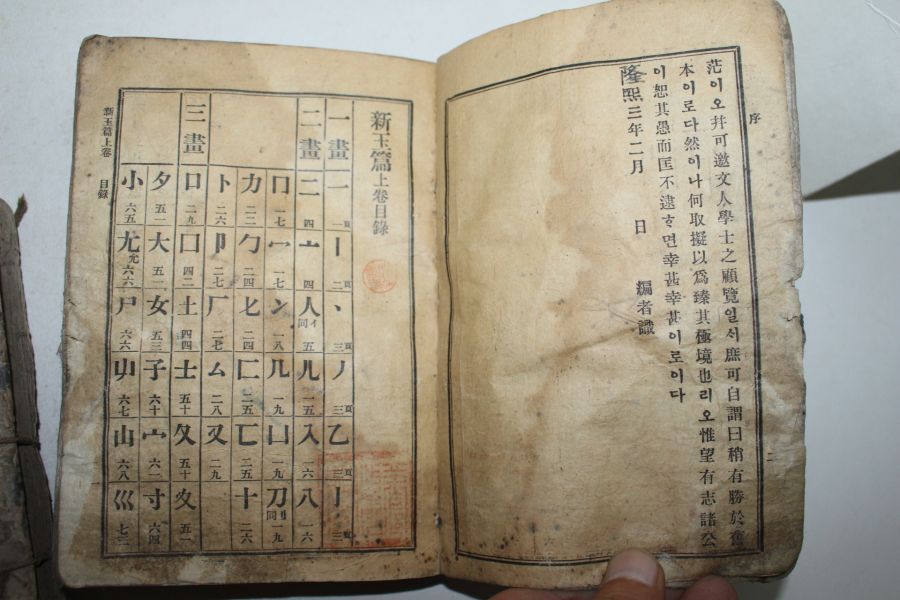 序
茫이오幷可邀文人學士之顧覽일시庶可自謂曰稍有勝於舊
本이로다然이나何取擬以爲臻其極境也리오惟望有志諸公
이恕其愚而匡不逮ᄒᆞ면幸甚幸甚이로이다
隆熙三年二月 日 編者識
二
新玉篇上卷目錄
一畫 一 一頁 丨 二頁 丶 三頁 丿 三頁 乙 三頁 亅 三頁
二畫 二 四 亠 四 人 亻同 五 儿 一五 入 六 八 一六
冂 一七 冖 一七 冫 一八 几 一九 凵 一九 刀 刂同 一九
力 二二 勹 二四 匕 二四 匚 二五 匸 二五 十 二六
卜 二六 卩 二七 厂 二七 厶 二八 又 二九
三畫 口 二九 囗 四二 土 四四 士 五十 夂 五十 夊 五一
夕 五一 大 五二 女 五三 子 六十 宀 六一 寸 六四
小 六五 尢 允 六六 尸 六六 屮 六七 山 六八 巛 七三
新玉篇上卷 目錄 一